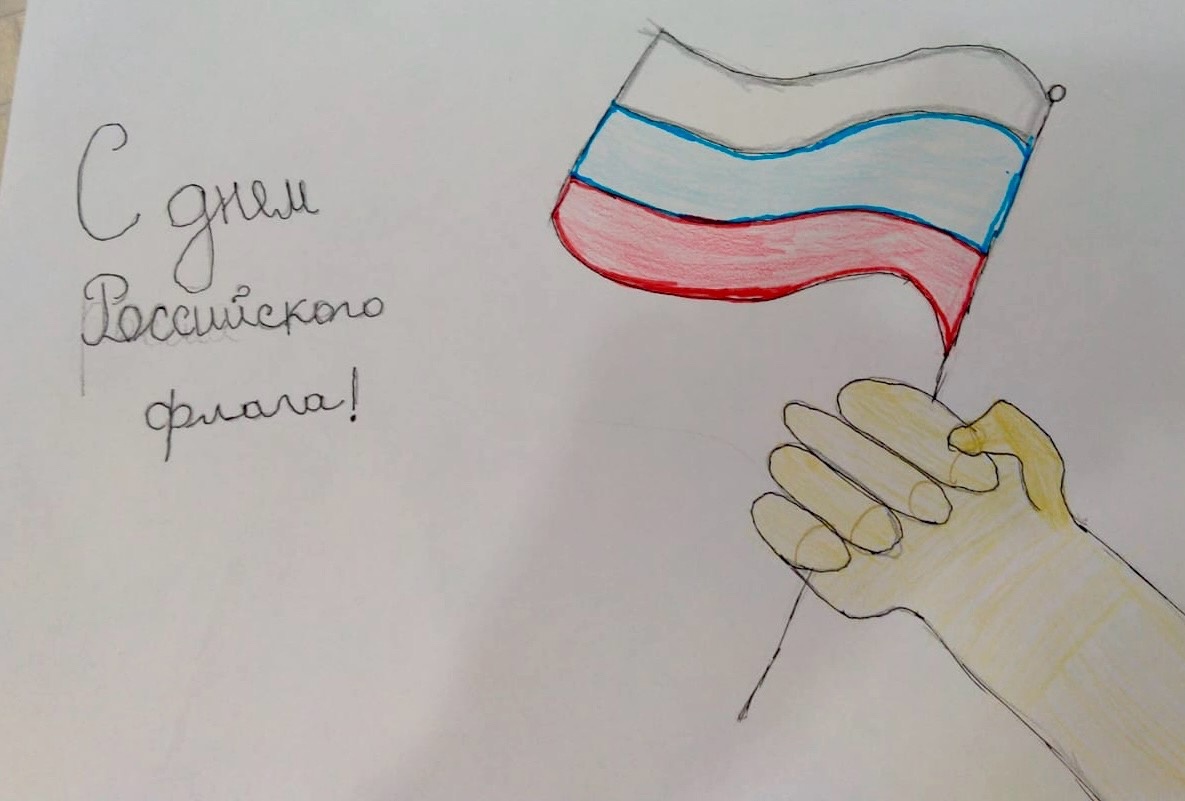 С днем
Российского
флага!